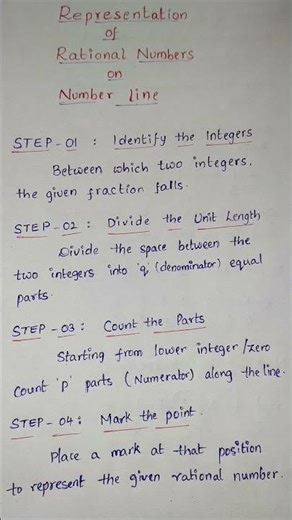 Representation
of
Rational Numbers
on
Number line
STEP-01 : Identify the Integers
Between which two integers,
the given fraction falls.
STEP-02 : Divide the Unit Length
Divide the space between the
two integers into 'q' (denominator) equal
parts.
STEP-03 : Count the Parts
Starting from lower integer/zero
Count 'p' parts (Numerator) along the line.
STEP-04 : Mark the point.
Place a mark at that position
to represent the given rational number.